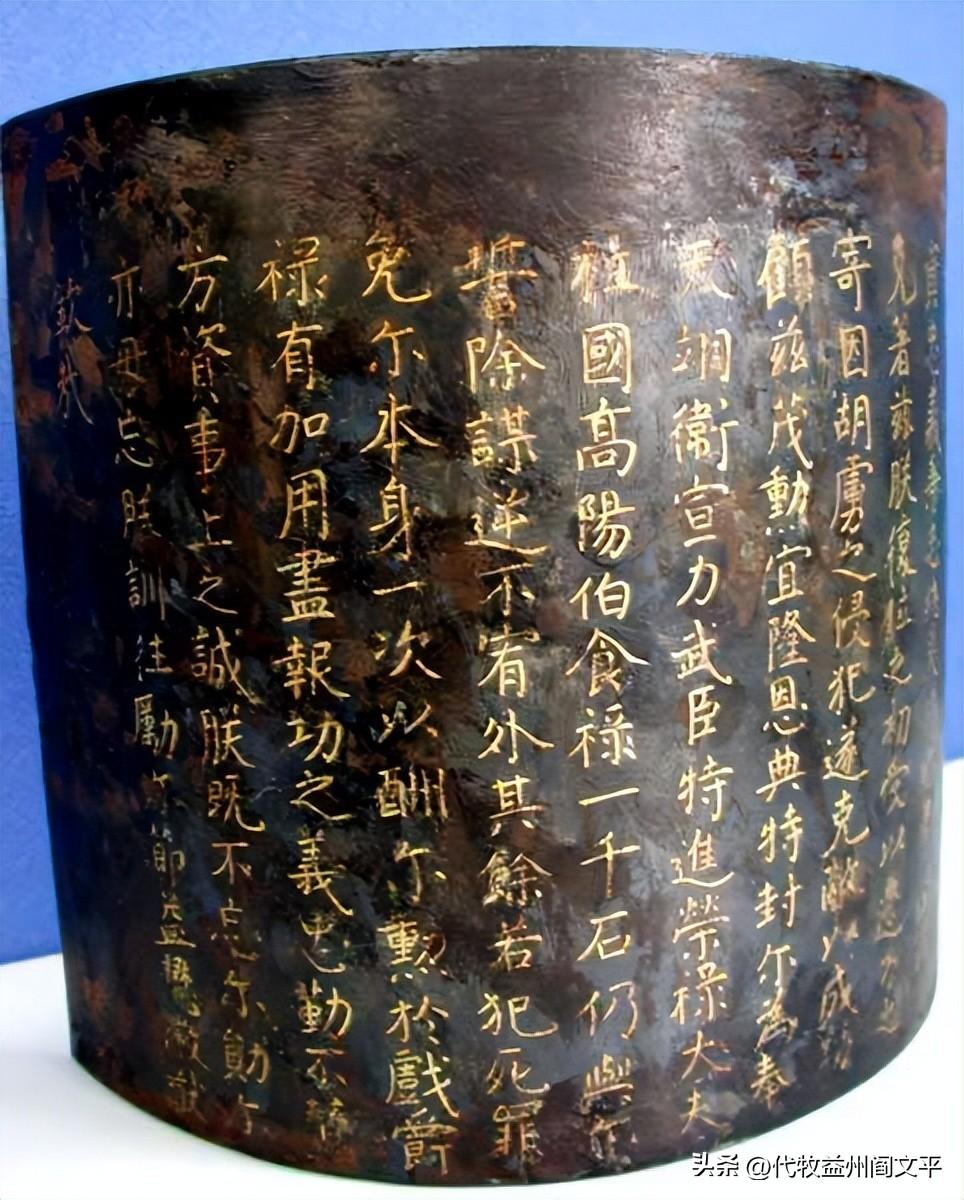 見著茲朕復位之初受以邊方之
寄因胡虜之侵犯遂克敵以成功
顧茲茂勳宜隆恩典特封尔為奉
天翊衛宣力武臣特進榮祿大夫
柱國高陽伯食祿一千石仍與尔
誓除謀逆不宥外其餘若犯死罪
免尔本身一次以酬尔勲於戲爵
祿有加用盡報功之義忠勤不替
方資事上之誠朕既不忘尔勛尔
亦毋忘朕訓往勵尔節益懋厥猷
欽哉
头条 @代牧益州阎文平